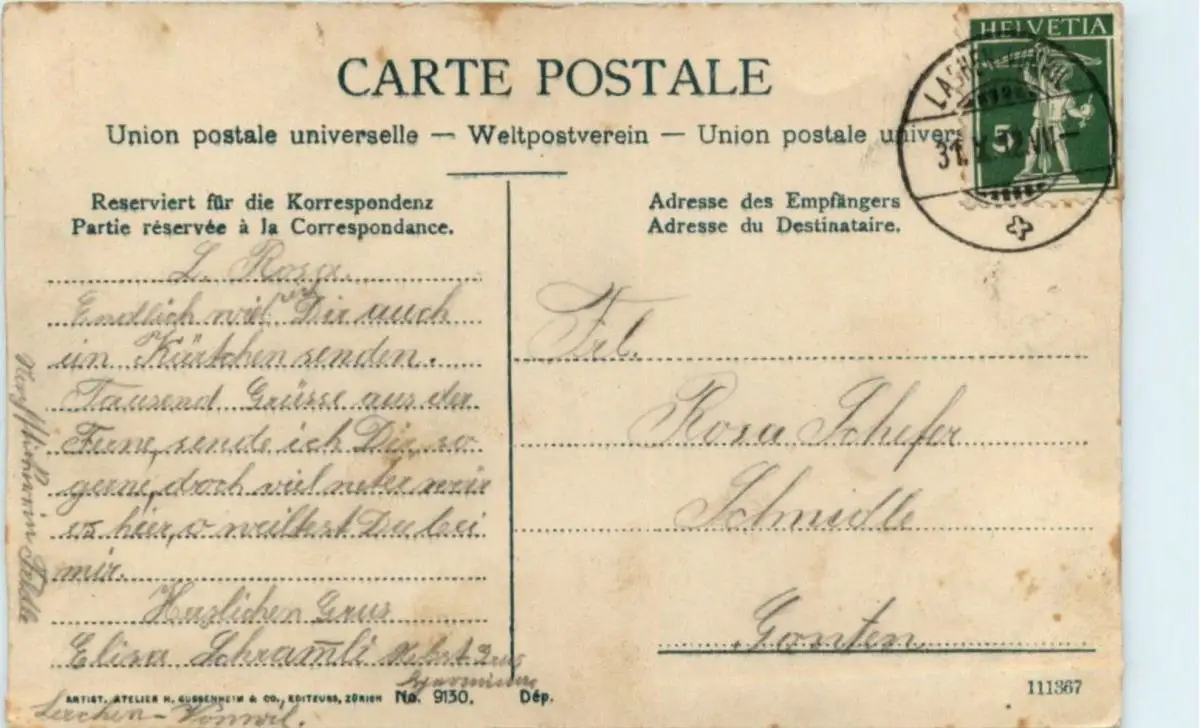 CARTE POSTALE
Union postale universelle — Weltpostverein — Union postale univers
HELVETIA
5
LACHEN-VONWIL
31. X. 12. VII—
Reserviert für die Korrespondenz
Partie réservée à la Correspondance.
Adresse des Empfängers
Adresse du Destinataire.
L. Rosa.
Endlich will ich Dir auch
ein Kärtchen senden.
Tausend Grüsse aus der
Ferne, sende ich Dir, so
gerne, doch viel neter wär
es hier, o weiltest Du bei
mir.
Herzlichen Grus
Elisa Schramli
Lachen-Vonwil.
Frl.
Rosa Schefer
Schmidle
Gonten
ARTIST. ATELIER H. GUGGENHEIM & CO., EDITEURS, ZÜRICH No. 9130. Dép.
111367